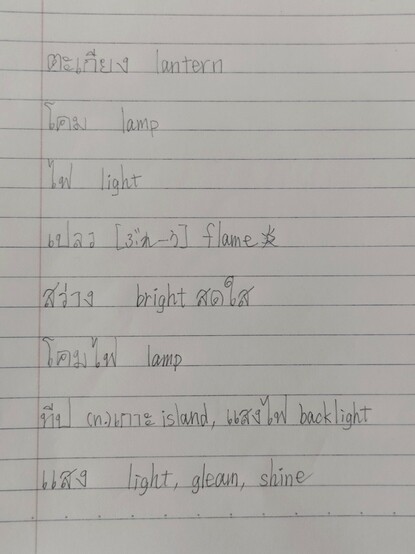 ตะเกียง lantern
โคม lamp
ไฟ light
เปลว [ぷれーう] flame 炎
สว่าง bright สดใส
โคมไฟ lamp
ทีป (n.) เกาะ island, แสงไฟ backlight
แสง light, gleam, shine